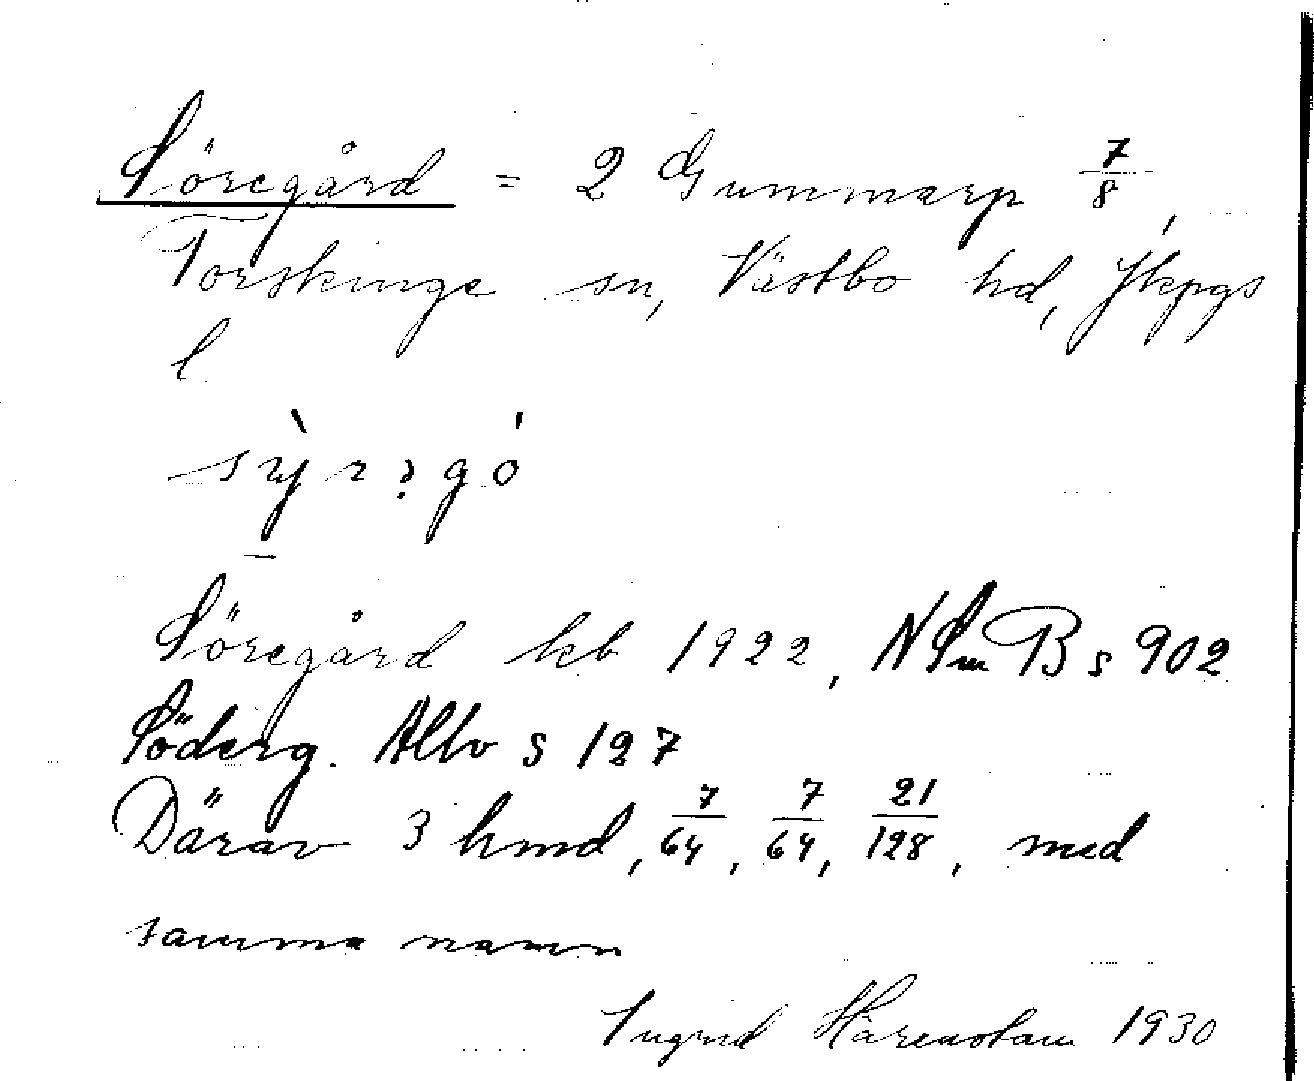 Söregård = 2 Gummarp 7/8,
Torskinge sn, Västbo hd, Jkpgs
l
Söregård kb 1922, NSmB s 902
Söderg. Allbo s 127
Därav 3 hmd, 7/64, 7/64, 21/128, med
samma namn
Ingrid Härenstam 1930